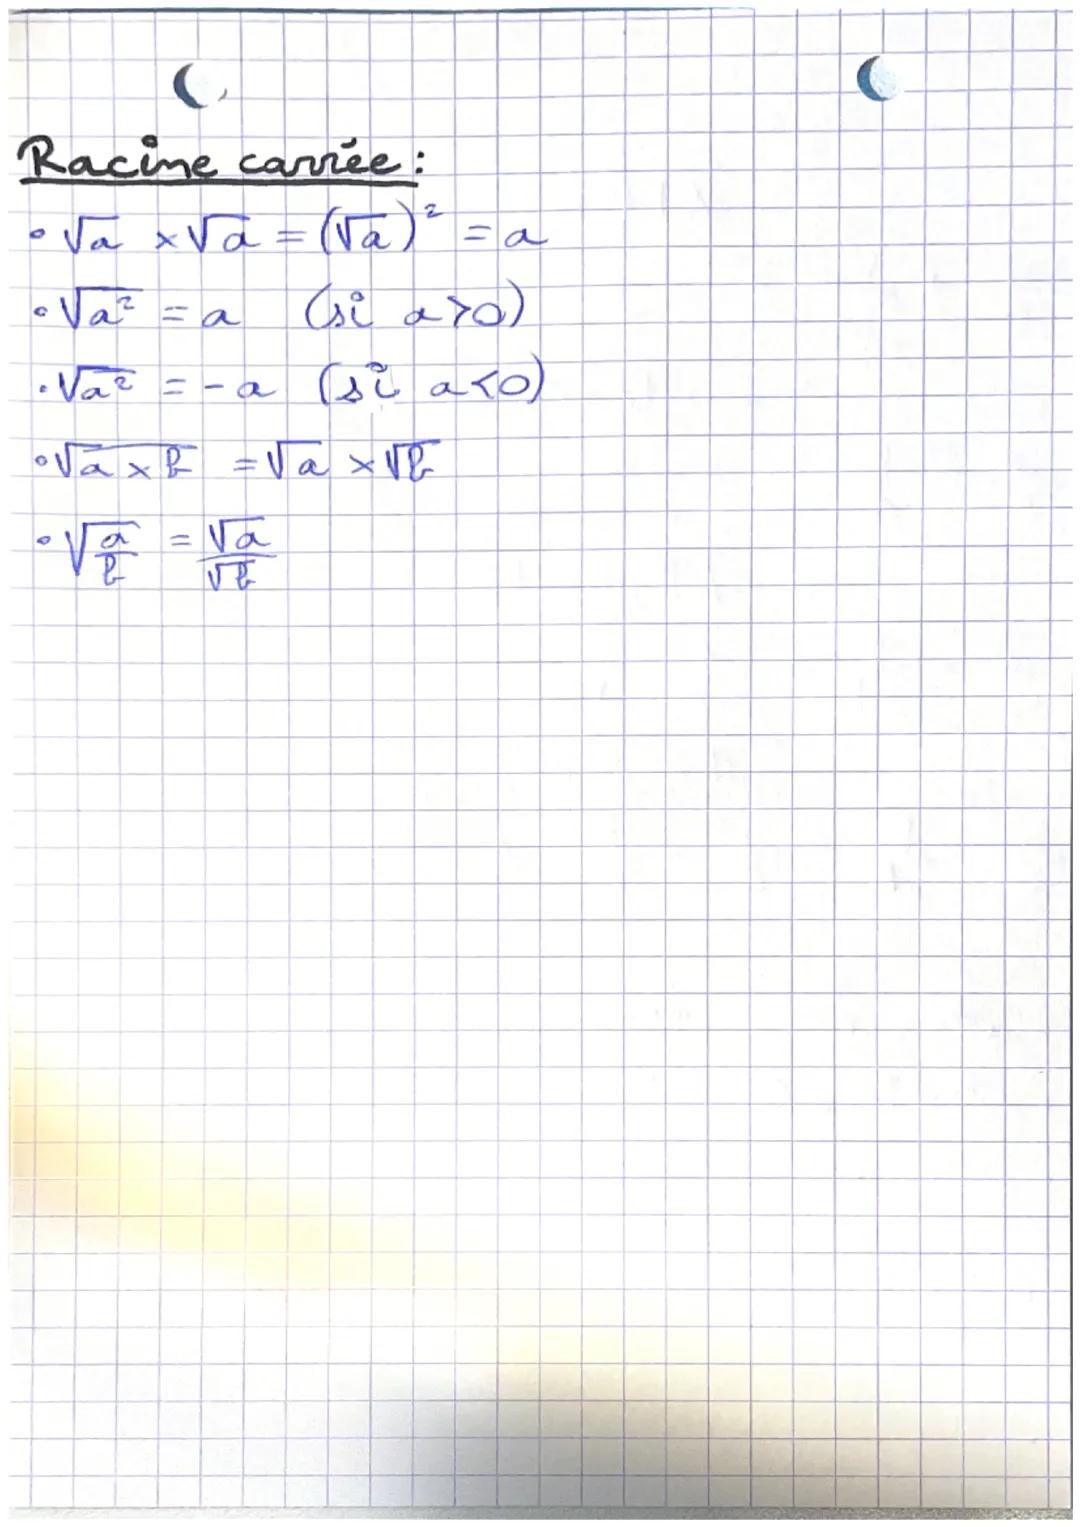 Racine carrée :
• √a × √a = (√a)² = a
• √a² = a (si a>0)
• √a² = -a (si a<0)
• √(a × b) = √a × √b
• √(a/b) = √a/√b